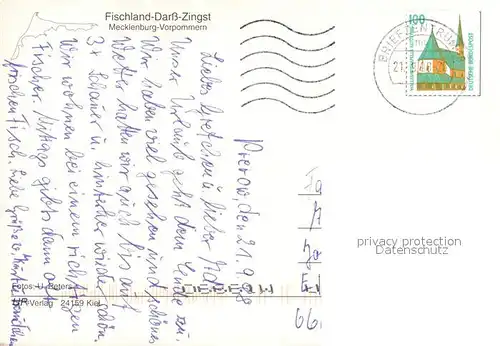 Fischland-Darß-Zingst
Mecklenburg-Vorpommern
100
DEUTSCHE BUNDESPOST
BRIEFZENTRUM
21.
Prerow, den 21.9.98
Liebes Gretchen u. lieber
Unser Urlaub geht dem Ende zu.
Wir haben viel gesehen und schönes
Wetter hatten wir auch bis auf
3x Schauer u. hinterher wieder schön.
Wir wohnen bei einem richtigen
Fischer. Mittags gibts dann oft
frischen Fisch. Liebe Grüße v.
Fotos: U.
Verlag 24159 Kiel
66
privacy protection
Datenschutz